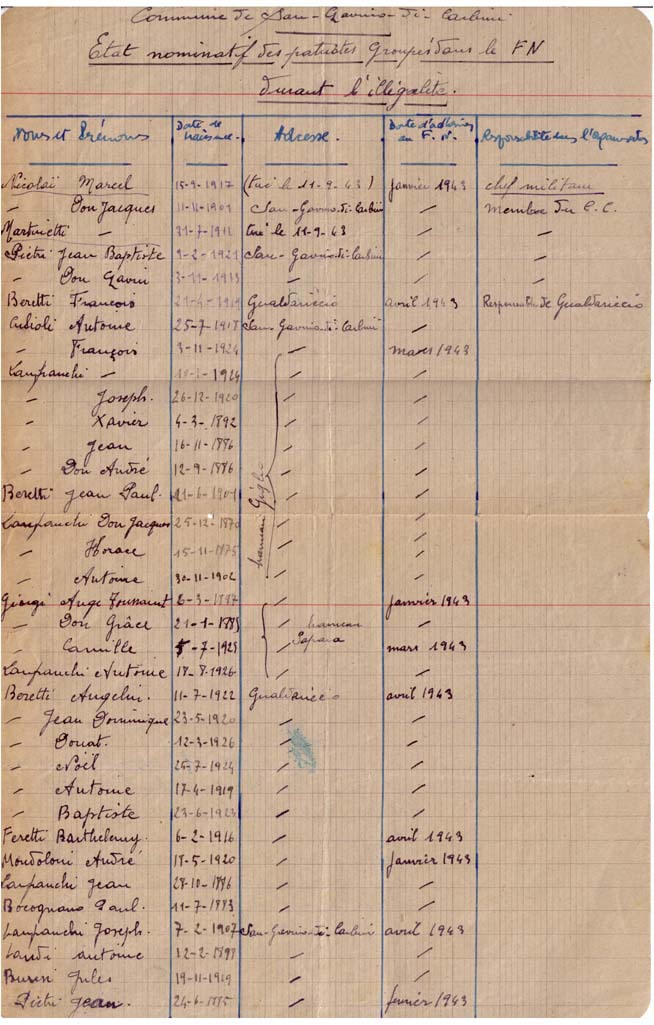 Commune de San-Gavino-di-Carbini
Etat nominatif des patriotes Groupés dans le FN
durant l'illégalité.
Noms et Prénoms Date de naissance. Adresse. Date d'adhésion au F.N. Responsabilité dans l'
Nicolaï Marcel 15-9-1917 (tué le 11-9-43) janvier 1943 chef militaire
〃 Don Jacques 11-11-1901 San-Gavino-di-Carbini 〃 Membre du C.C.
Martinetti 〃 31-7-1911 tué le 11-9-43 〃 〃
Piétri Jean Baptiste 9-2-1921 San-Gavino-di-Carbini 〃 〃
〃 Don Gavin 3-11-1913 〃 〃 〃
Beretti François 21-4-1919 Gualdariccio avril 1943 Responsable de Gualdariccio
Cubioli Antoine 25-7-1917 San-Gavino-di-Carbini 〃
〃 François 3-11-1924 〃 mars 1943
Lanfranchi 〃 1924 〃 〃
〃 Joseph. 26-12-1920 〃 〃
〃 Xavier 4-3-1892 〃 〃
〃 Jean 16-11-1886 〃 〃
〃 Don André 12-9-1886 〃 〃
Beretti Jean Paul. 21-6-1901 〃 〃
hameau
Lanfranchi Don Jacques 25-12-1870 〃 〃
〃 Horace 15-11-1875 〃 〃
〃 Antoine 30-11-1902 〃 〃
Giorgi Ange Toussaint 6-3-1887 〃 janvier 1943
〃 Don Grâce 21-1-1885 〃 hameau 〃
〃 Camille 5-7-1925 〃 Papara mars 1943
Lanfranchi Antoine 18-8-1926 〃 〃
Beretti Angelin. 11-7-1922 Gualdariccio avril 1943
〃 Jean Dominique 23-5-1920 〃 〃
〃 Donat. 12-3-1926 〃 〃
〃 Noël 25-7-1924 〃 〃
〃 Antoine 17-4-1919 〃 〃
〃 Baptiste 23-6-1923 〃 〃
Feretti Barthélemy. 6-2-1916 〃 avril 1943
Mondoloni André 18-5-1920 〃 janvier 1943
Lanfranchi Jean 28-10-1886 〃 〃
Bocognano Paul. 11-7-1883 〃 〃
Lanfranchi Joseph. 7-2-1907 San-Gavino-di-Carbini avril 1943
Landi antoine 12-2-1898 〃 〃
Jules 19-11-1919 〃 〃
Piétri Jean. 24-6-1885 〃 février 1943